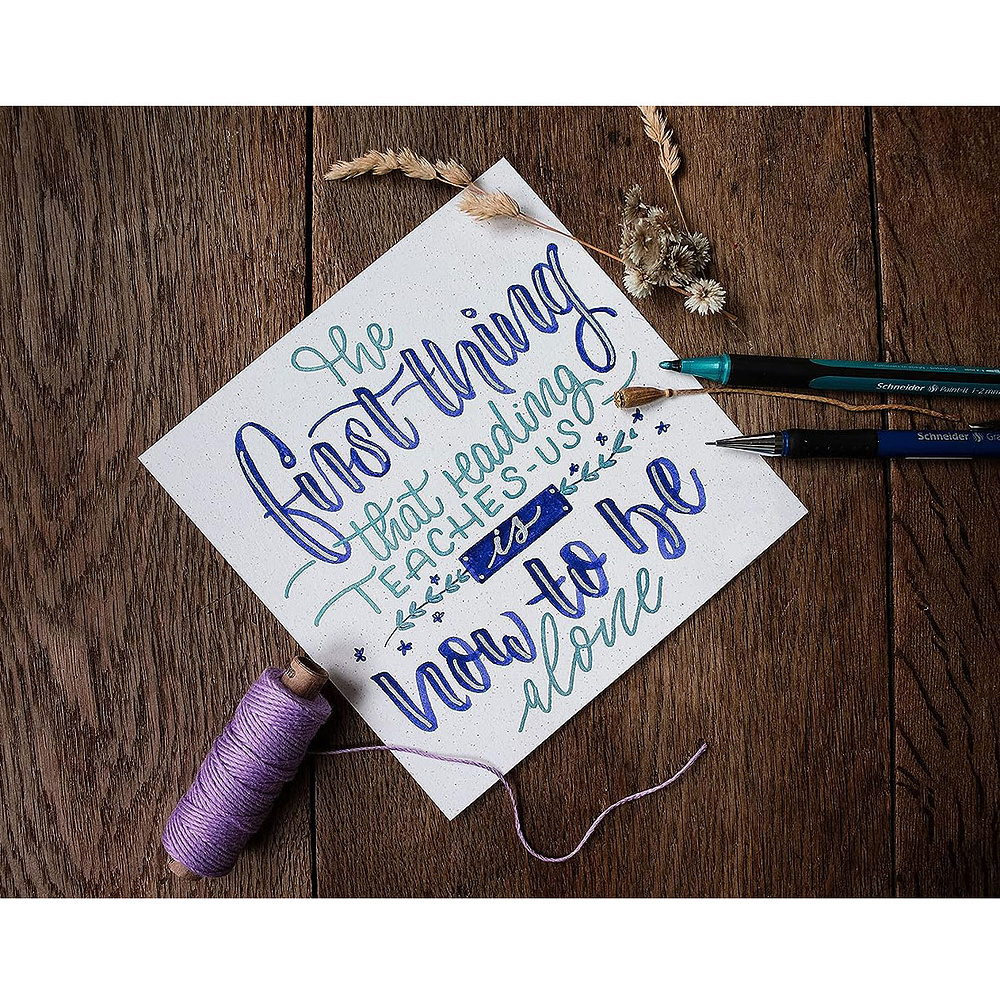 The
first thing
that reading
TEACHES-US
is
how to be
alone
Schneider Paint-it 1-2 mm
Schneider